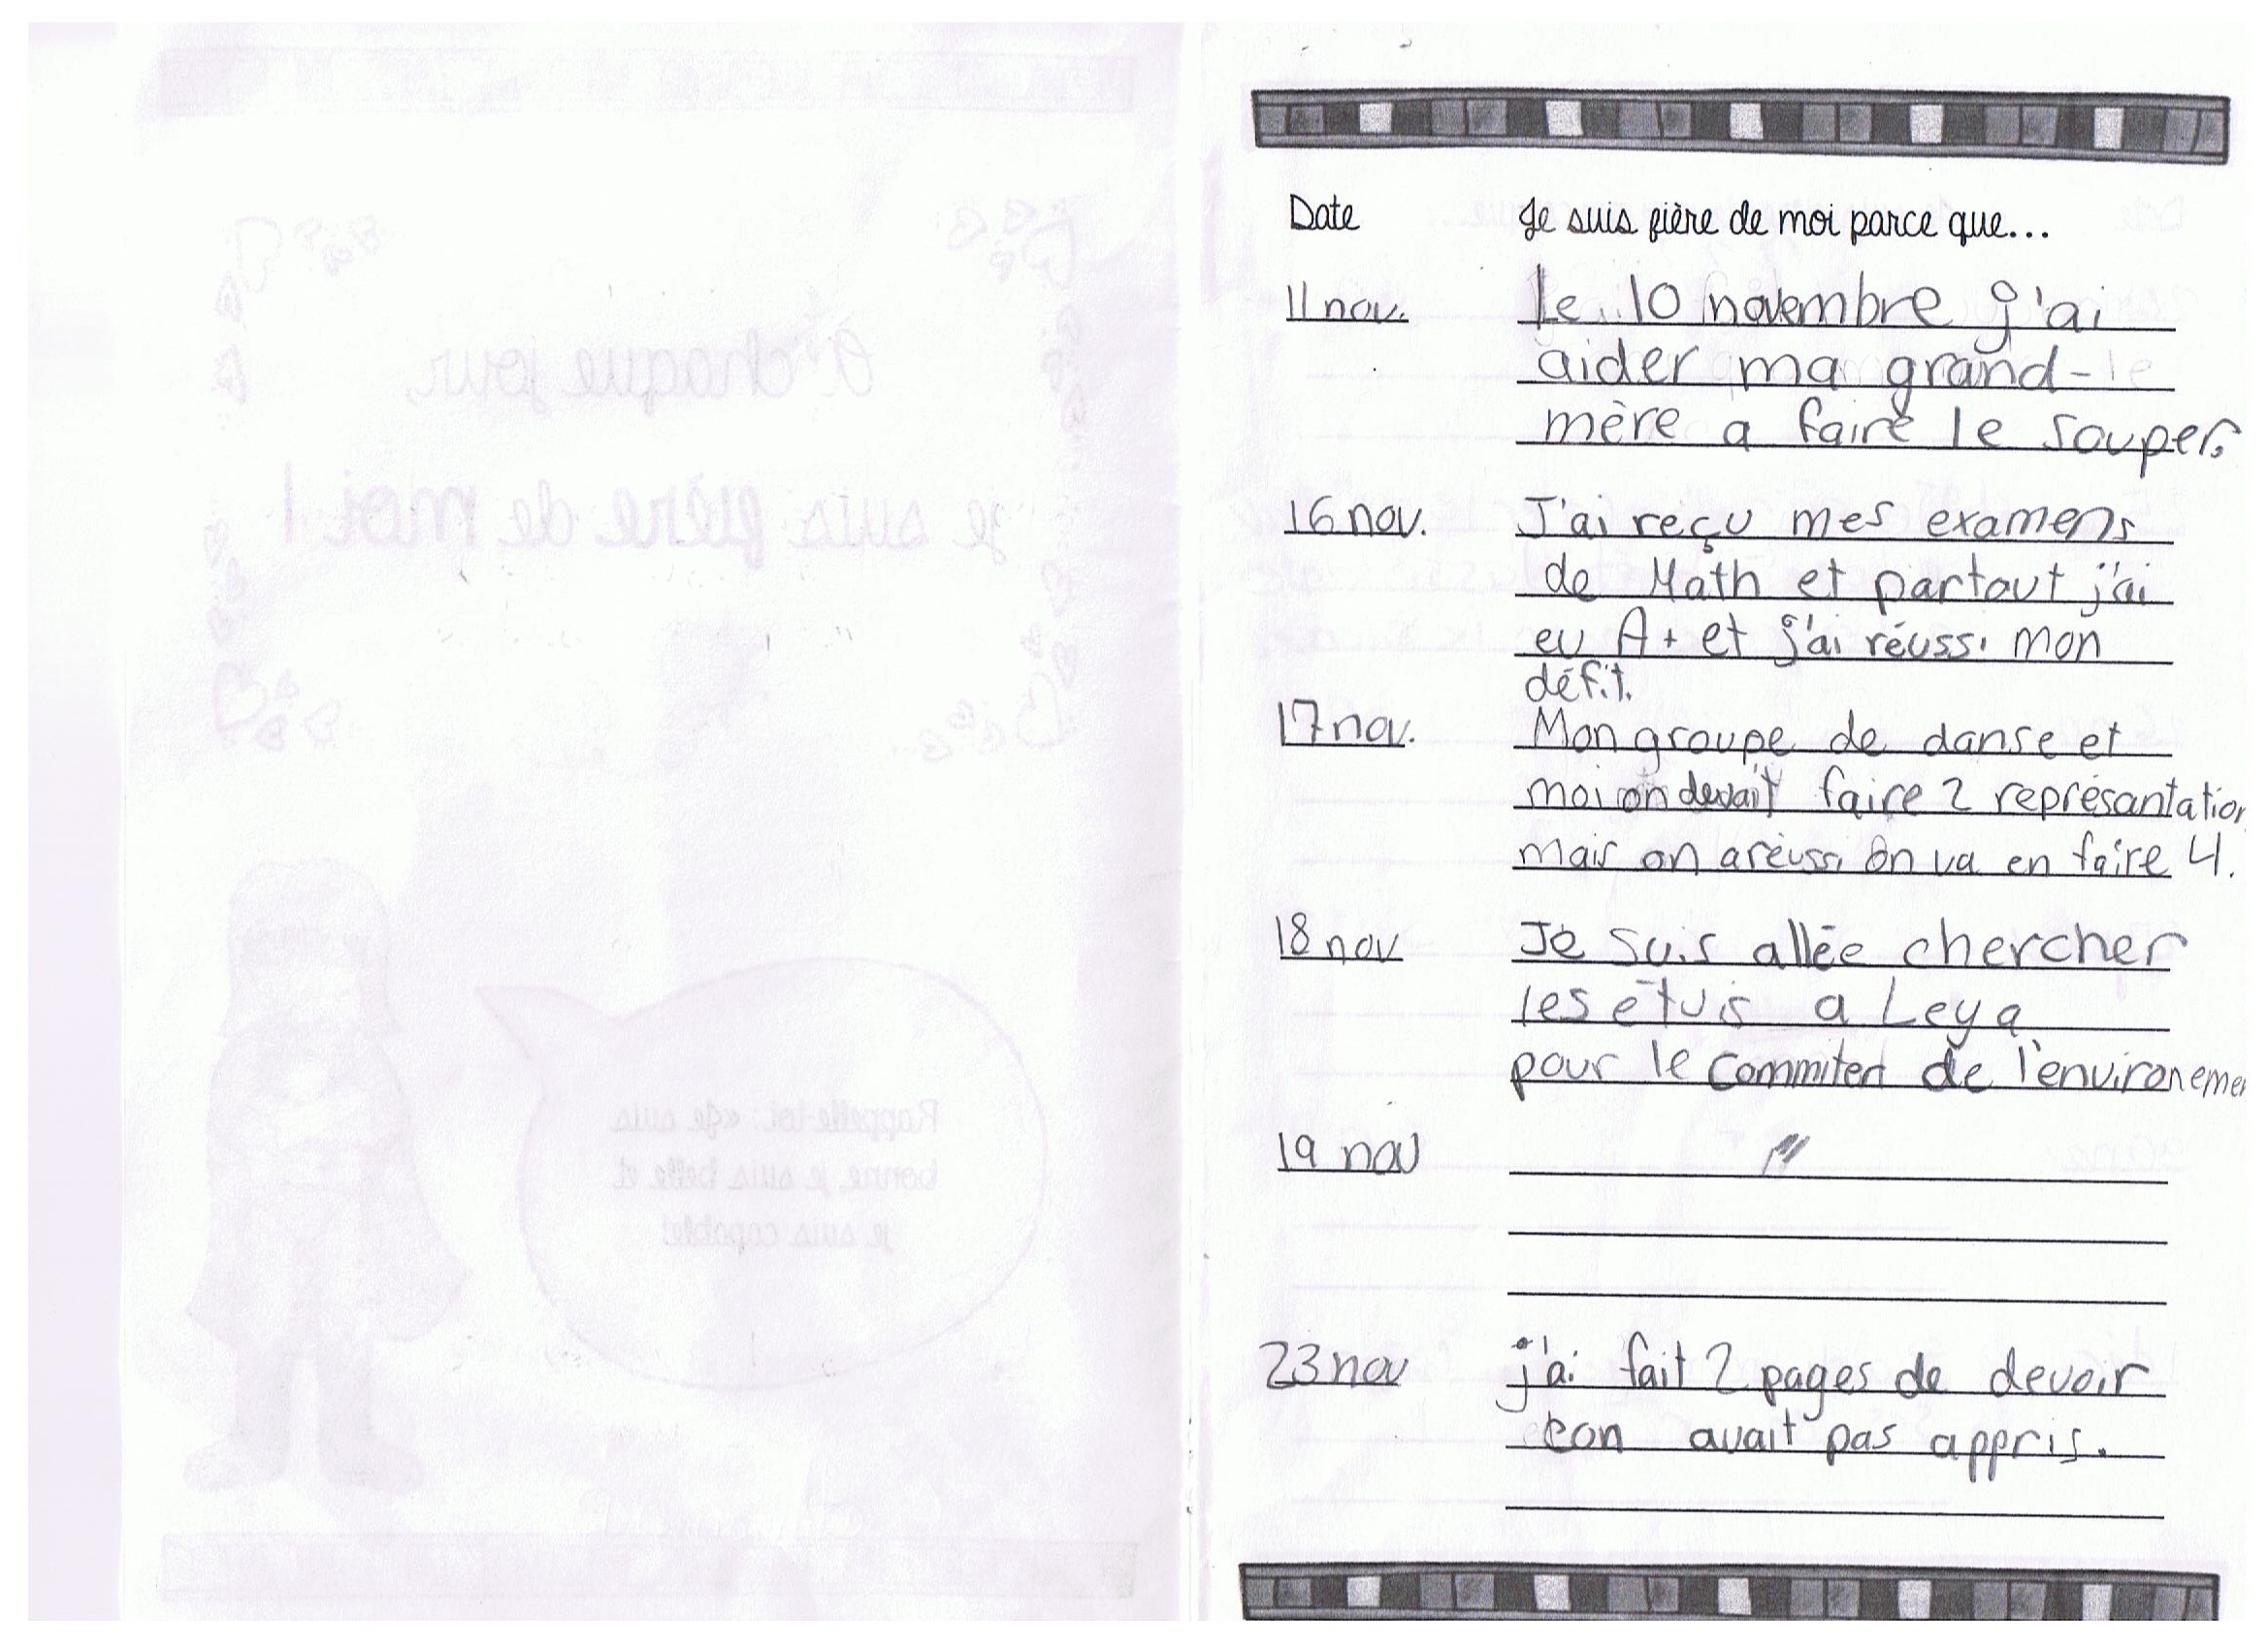 À chaque jour,
je suis fière de moi !
Rappelle-toi : «Je suis
bonne je suis belle et
je suis capable!
Date Je suis fière de moi parce que...
11 nov. le 10 novembre j'ai
aider ma grand-
mère a faire le souper.
16 nov. J'ai reçu mes examens
de Math et partout j'ai
eu A+ et j'ai réussi mon
défit.
17 nov. Mon groupe de danse et
moi on devait faire 2 représantation
mais on a réussi on va en faire 4.
18 nov Je suis allée chercher
les étuis a Leya
pour le de l'environemen
19 nov
23 nov j'ai fait 2 pages de devoir
con avait pas appris.